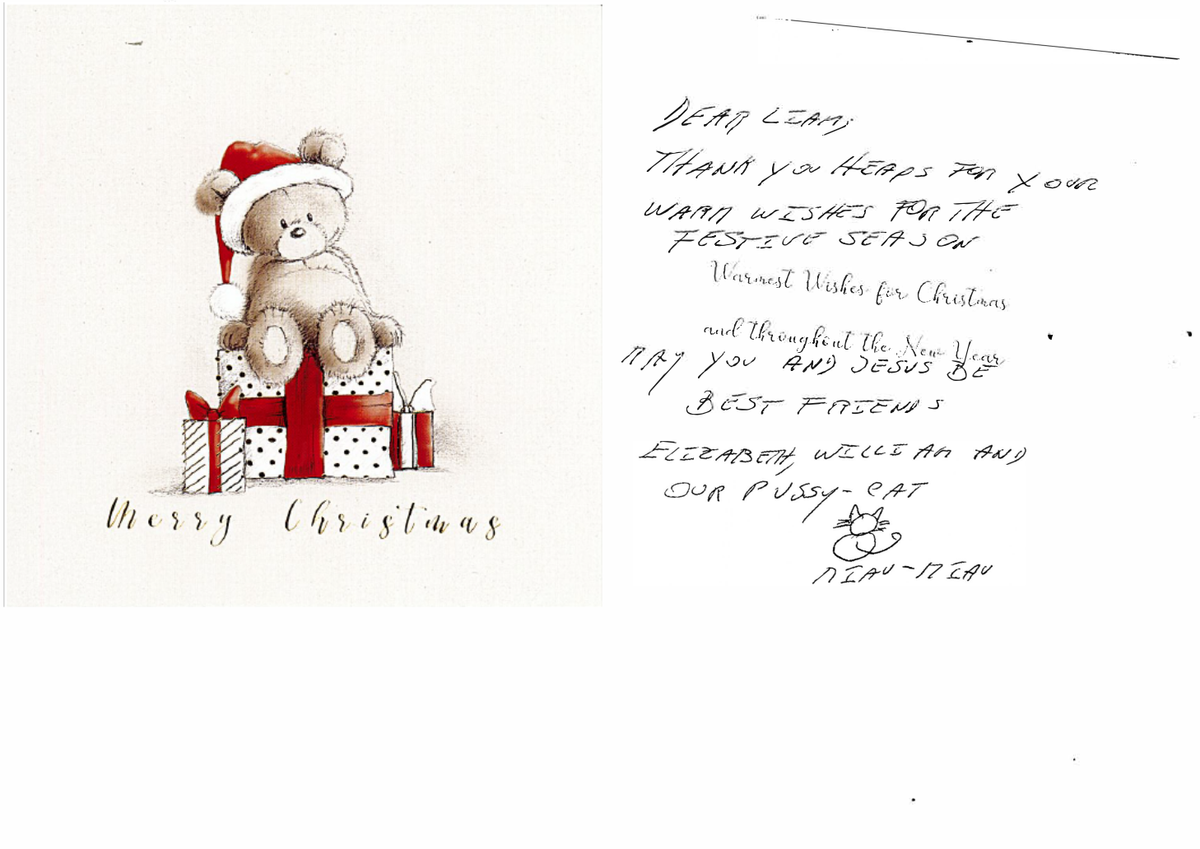 Merry Christmas
DEAR LIAM,
THANK YOU HEAPS FOR YOUR
WARM WISHES FOR THE
FESTIVE SEASON
Warmest Wishes for Christmas
and throughout the New Year
MAY YOU AND JESUS BE
BEST FRIENDS
ELIZABETH, WILLIAM AND
OUR PUSSY-CAT
MIAU-MIAU